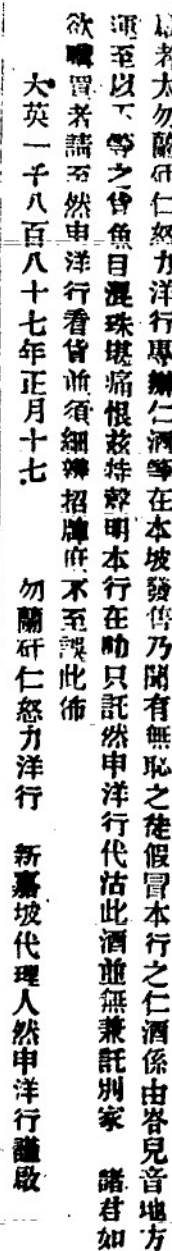 啟者太勿蘭矸仁怒力洋行專辦仁酒等在本坡發售乃聞有無恥之徒假冒本行之仁酒係由峇兒音地方
運至以下等之貨魚目混珠堪痛恨茲特聲明本行在叻只託然申洋行代沽此酒並無兼託別家 諸君如
欲購買者請至然申洋行看貨並須細辨招牌庶不至誤此佈
大英一千八百八十七年正月十七 勿蘭矸仁怒力洋行 新嘉坡代理人然申洋行謹啟